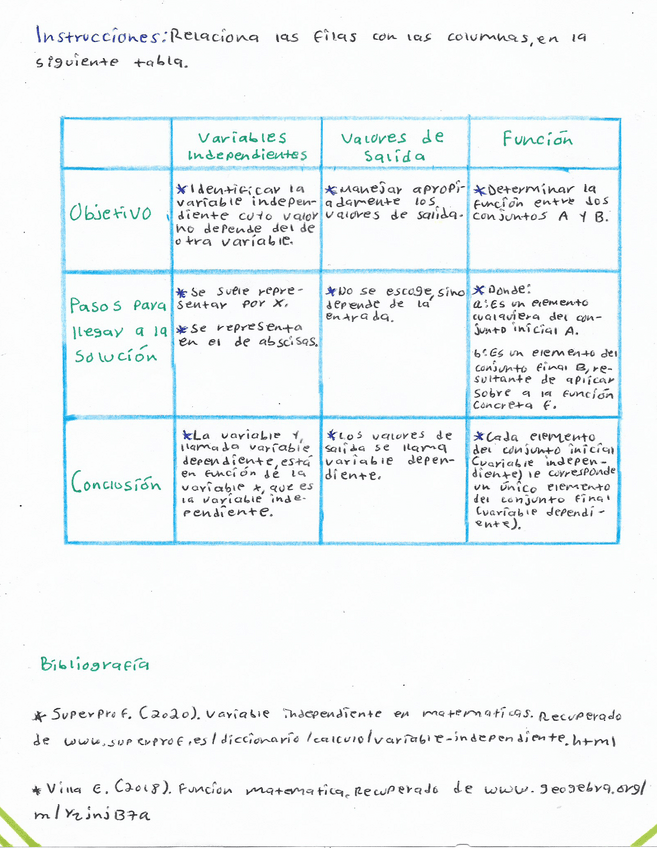 Instrucciones: Relaciona las filas con las columnas, en la
siguiente tabla.
Variables
Independientes
Valores de
Salida
Función
Objetivo
*Identificar la
variable indepen-
diente cuto valor
no depende del de
otra variable.
*Manejar apropi-
adamente los
valores de salida.
*Determinar la
función entre dos
conjuntos A y B.
Pasos para
llegar a la
Solución
*Se suele repre-
sentar por X.
*Se representa
en el de abscisas.
*No se escoge, sino
depende de la
entrada.
*Donde:
a: Es un elemento
cualquiera del con-
junto inicial A.
b: Es un elemento del
conjunto final B, re-
sultante de aplicar
Sobre a la función
Concreta f.
Conclusión
*La variable Y,
llamada variable
dependiente, está
en función de la
variable x, que es
la variable inde-
pendiente.
*Los valores de
salida se llama
variable depen-
diente.
*Cada elemento
del conjunto inicial
(variable indepen-
diente) le corresponde
un único elemento
del conjunto final
(variable dependi-
ente).
Bibliografía
* SuperProf. (2020). Variable independiente en matematicas. Recuperado
de www.superprof.es/diccionario/calculo/variable-independiente.html
* Villa E. (2018). Funcion matematica. Recuperado de www.geogebra.org/
m/YzinjB7a